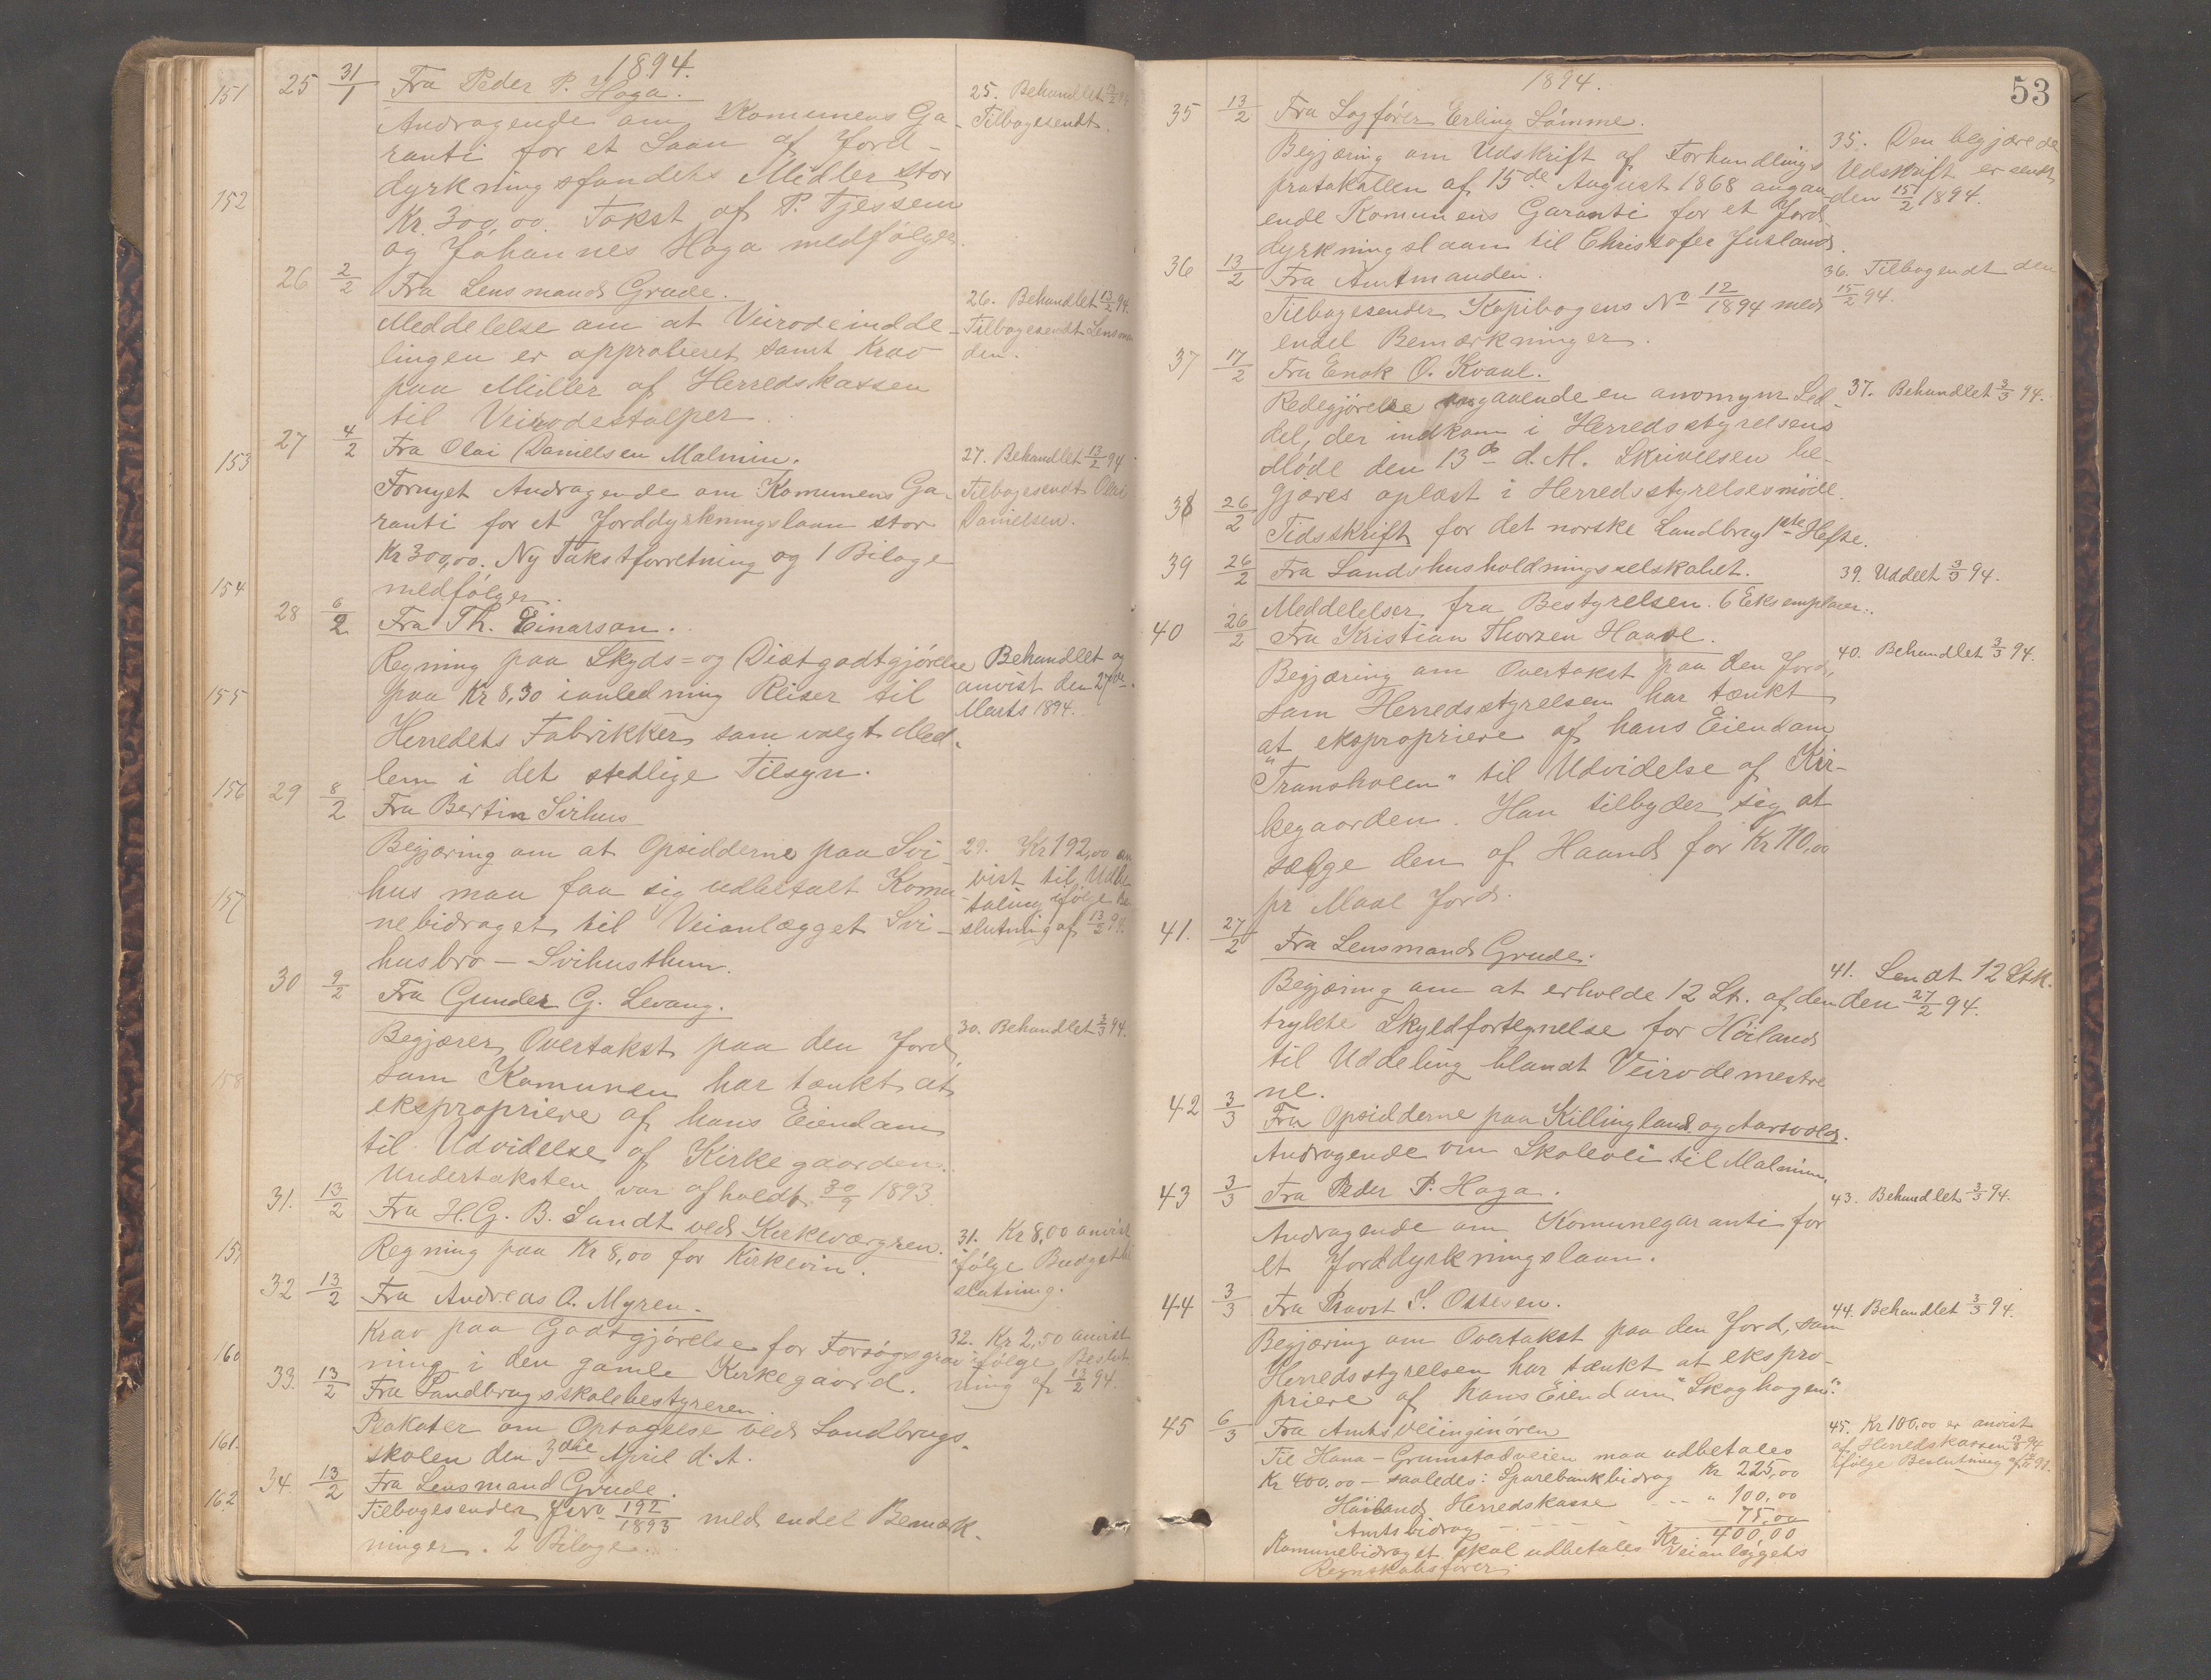 1894.
151
25 31/1 Fra Peder P. Haga.
Andragende om Komunens Ga-
ranti for et Laan af Jord-
dyrkningsfondets Midler stor
Kr. 300,00. Takst af P. Tjessem
og Johannes Haga medfølger.
25. Behandlet 13/2 94
Tilbagesendt.
152
26 2/2 Fra Lensmand Grude.
Meddelelse om at Veirodeindde-
lingen er approberet samt Krav
paa Midler af Herredskassen
til Veirodestolper.
26. Behandlet 13/2 94.
Tilbagesendt Lensman
den.
153
27 4/2 Fra Olai Danielsen Malmin.
Fornyet Andragende om Komunens Ga-
ranti for et Jorddyrkningslaan stor
Kr 300,00. Ny Takstforretning og 1 Bilage
medfølger.
27. Behandlet 13/2 94
Tilbagesendt Olai
Danielsen.
154
28 6/2 Fra Th. Einarson.
Regning paa Skyds- og Diætgodtgjørelse
paa Kr 8,30 i anledning Reiser til
Herredets Fabrikker som valgt Med-
lem i det stedlige Tilsyn.
Behandlet og
anvist den 27de
Marts 1894.
155
156
29 8/2 Fra Bertin Svihus
Begjæring om at Opsidderne paa Svi-
hus maa faa sig udbetalt Komu-
nebidraget til Veianlægget Svi-
husbro - Svihusthun.
29. Kr 192,00 an
vist til Udbe-
taling ifølge Be-
slutning af 13/2 94.
157
30 9/2 Fra Gunder G. Levang.
Begjærer Overtakst paa den Jord,
som Komunen har tænkt at
ekspropriere af hans Eiendom
til Udvidelse af Kirkegaarden.
Undertaksten var afholdt 30/9 1893.
30. Behandlet 3/3 94.
158
31. 13/2 Fra H. G. B. Sundt ved Kirkeværgen.
Regning paa Kr 8,00 for Kirkevin.
31. Kr 8,00 anvist
ifølge Budgetbe
slutning.
159
32 13/2 Fra Andreas A. Myren.
Krav paa Godtgjørelse for Forsøgsgrav-
ning i den gamle Kirkegaard.
32. Kr 2,50 anvist
ifølge Beslut
ning af 13/2 94.
160
33. 13/2 Fra Landbrugsskolebestyreren.
Plakater om Optagelse ved Landbrugs-
skolen den 3die April d. A.
161.
34. 13/2 Fra Lensmand Grude.
Tilbagesender Jrno 192/1893 med endel Bemærk-
ninger. 2 Bilage.
162
53
1894.
35 13/2 Fra Sagfører Erling Sømme.
Begjæring om Udskrift af Forhandlings
protokollen af 15de August 1868 angaa-
ende Komunens Garanti for et Jord-
dyrkningslaan til Christofer Jutland.
35. Den begjærede
Udskrift er sendt
den 15/2 1894.
36 13/2 Fra Amtmanden.
Tilbagesender Kopibogens No 12/1894 med
endel Bemærkninger.
36. Tilbagendt den
15/2 94.
37 17/2 Fra Enok O. Kvaal.
Redegjørelse angaaende en anonym Sed-
del, der indkom i Herredsstyrelsens
Møde den 13de d. M. Skrivelsen be-
gjæres oplæst i Herredsstyrelsesmøde.
37. Behandlet 3/3 94.
38 26/2 Tidsskrift for det norske Landbrug 1ste Hefte.
39 26/2 Fra Landhusholdningsselskabet.
Meddelelser fra Bestyrelsen. 6 Eksemplarer.
39. Uddelt 3/3 94.
40 26/2 Fra Kristian Thorzen Haave.
Begjæring om Overtakst paa den Jord,
som Herredsstyrelsen har tænkt
at ekspropriere af hans Eiendom
"Tranholen" til Udvidelse af Kir-
kegaarden. Han tilbyder sig at
sælge den af Haand for Kr 110,00
pr Maal Jord.
40. Behandlet 3/3 94.
41. 27/2 Fra Lensmand Grude.
Begjæring om at erholde 12 St. af den
trykte Skyldfortegnelse for Høiland
til Uddeling blandt Veirodemestre
ne.
41. Sendt 12 Stk.
den 27/2 94.
42 3/3 Fra Opsidderne paa Killingland og Aarsvold.
Andragende om Skolevei til Malmin.
43 3/3 Fra Peder P. Haga.
Andragende om Komunegaranti for
et Jorddyrkningslaan.
43. Behandlet 3/3 94.
44 3/3 Fra Provst S. Ottesen.
Begjæring om Overtakst paa den Jord, som
Herredsstyrelsen har tænkt at ekspro-
priere af hans Eiendom "Skoghagen".
44. Behandlet 3/3 94.
45 6/3 Fra Amtsveiingeniøren
Til Hana - Gramstadveien maa udbetales
Kr 400,00 - saaledes: Sparebankbidrag Kr 225,00
Høiland Herredskasse - - " 100,00
Amtsbidrag - - - - 75,00
Kr 400,00
Komunebidraget skal udbetales Veianlæggets
Regnskabsfører.
45. Kr 100,00 er anvist
af Herredskassen
ifølge Beslutning af